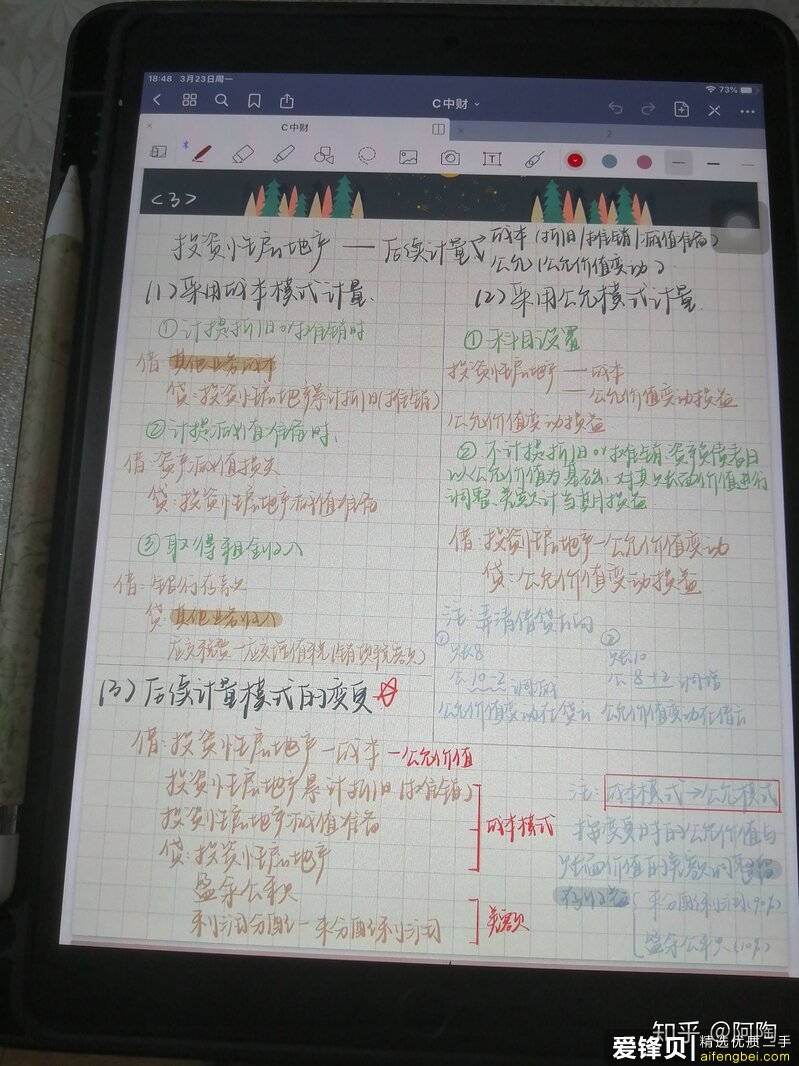 18:48 3月23日周一
73%
C中财
C中财
2
<3>
投资性房地产 — 后续计量
成本(折旧/摊销/减值准备)
公允(公允价值变动)
(1)采用成本模式计量.
①计提折旧or摊销时
借:其他业务成本
贷:投资性房地产累计折旧(摊销)
②计提减值准备时.
借:资产减值损失
贷:投资性房地产减值准备
③取得租金收入
借:银行存款
贷:其他业务收入
应交税费—应交增值税(销项税额)
(2)采用公允模式计量.
①科目设置
投资性房地产 — 成本
— 公允价值变动损益
公允价值变动损益
②不计提折旧or摊销.资产负债表日
以公允价值为基础,对其账面价值进行
调整,差额计当期损益
借:投资性房地产—公允价值变动
贷:公允价值变动损益
注:弄清借贷方向
① 账8
公 10-2 调减
公允价值变动在贷方
② 账10
公 8+2 调增
公允价值变动在借方
(3)后续计量模式的变更
借:投资性房地产—成本 —公允价值
投资性房地产累计折旧(摊销)
投资性房地产减值准备
贷:投资性房地产
成本模式
盈余公积
利润分配—未分配利润
差额
注:成本模式→公允模式
按变更时的公允价值与
账面价值的差额调整留
存收益
未分配利润(90%)
盈余公积(10%)
知乎 @阿陶
爱锋贝 精选优质二手
aifengbei.com